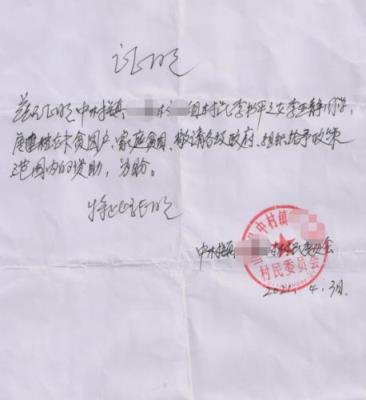 证明
兹证明中村镇 村 组村民李书平之女李亚静同学,
属建档立卡贫困户,家庭贫困,敬请各级政府、组织给予政策
范围内的资助,为盼。
特此证明
中村镇 村民委员会
中村镇
村民委员会
2021.4.3